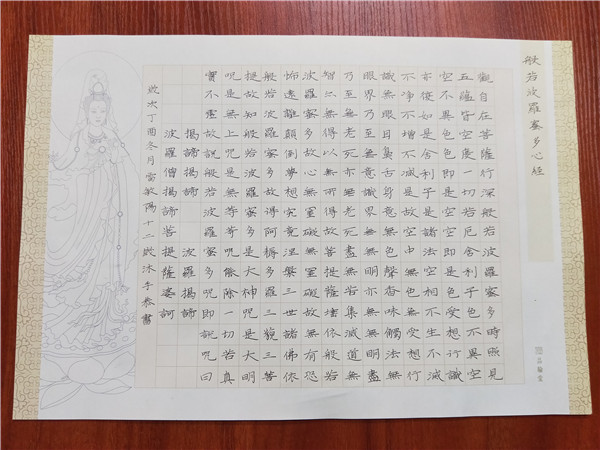 般若波羅蜜多心經
觀自在菩薩行深般若波羅蜜多時照見
五蘊皆空度一切苦厄舍利子色不異空
空不異色色即是空空即是色受想行識
亦復如是舍利子是諸法空相不生不滅
不淨不增不減是故空中無色無受想行
識無眼耳鼻舌身意無色聲香味觸法無
眼界乃至無意識界無無明亦無無明盡
乃至無老死亦無老死盡無苦集滅道無
智亦無得以無所得故菩提薩埵依般若
波羅蜜多故心無罣礙無罣礙故無有恐
怖遠離顛倒夢想究竟涅槃三世諸佛依
般若波羅蜜多故得阿耨多羅三藐三菩
提故知般若波羅蜜多是大神咒是大明
咒是無上咒是無等等咒能除一切苦真
實不虛故說般若波羅蜜多咒即說咒曰
揭諦揭諦 波羅揭諦
波羅僧揭諦菩提薩婆訶
歲次丁酉冬月雷敏陽十二歲沐手恭書
品翰堂